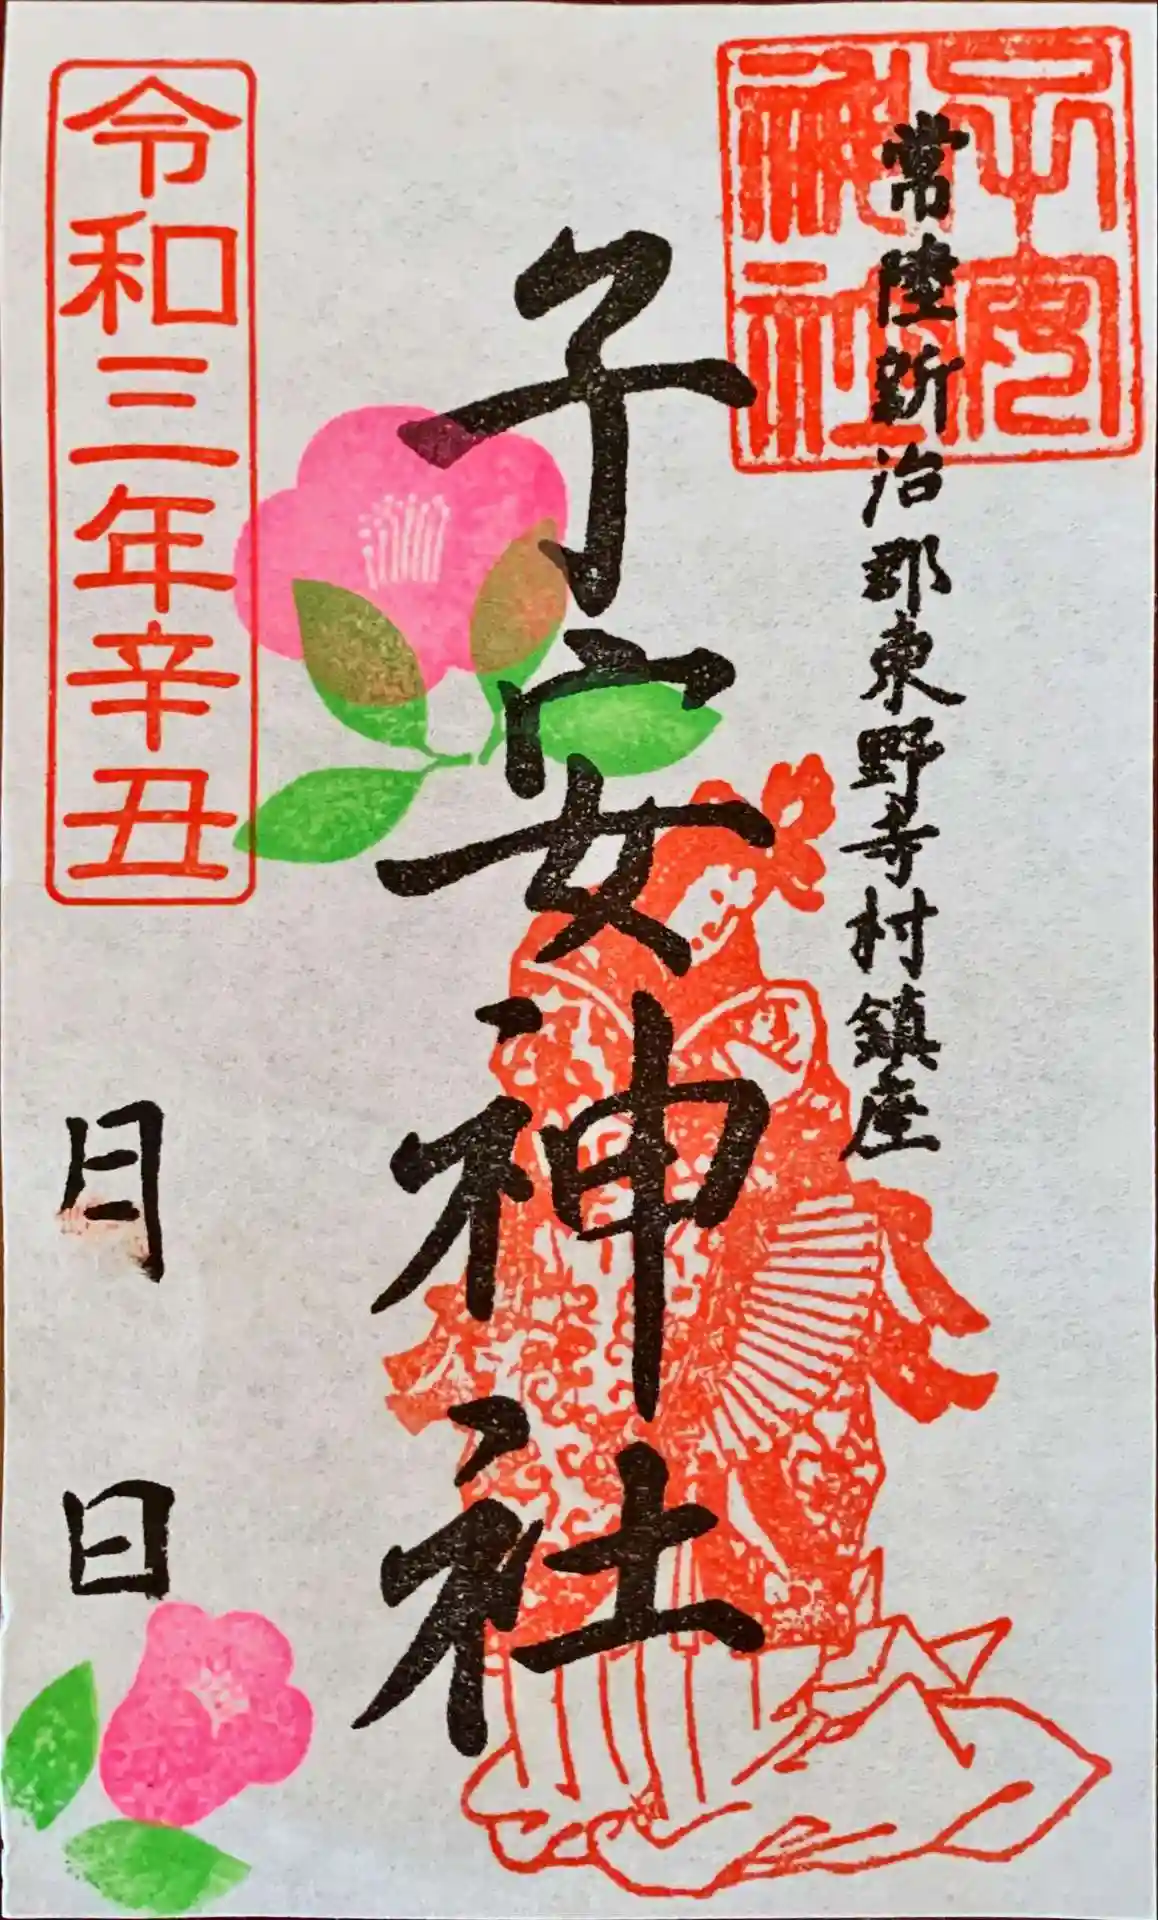 子安神社
常陸新治郡東野寺村鎮座
子安神社
令和三年辛丑
月 日